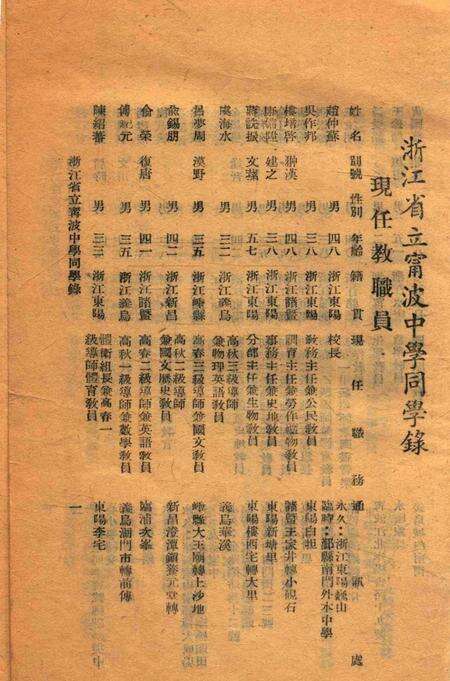 浙江省立甯波中學同學錄
現任教職員
姓名 別號 性別 年齡 籍貫 現任職務 通訊處
趙仲蘇 男 四八 浙江東陽 校長 永久：浙江東陽巍山 臨時：鄞縣南門外本中學
吳作邦 男 三八 浙江東陽 教務主任兼公民教員 東陽白坦
樓塔啓 翀漢 男 四八 浙江諸暨 訓育主任兼勞作植物教員 諸暨王家井轉小硯石
建之 男 三八 浙江東陽 事務主任兼史地教員 東陽新塘里
文藻 男 五七 浙江東陽 分部主任兼生物教員 東陽樓西宅轉大里
虞海水 男 三二 浙江義烏 高秋三級導師兼物理英語教員 義烏華溪
夢周 漠野 男 三五 浙江嵊縣 高春三級導師兼國文教員 嵊縣大王廟轉上沙地
俞錫朋 男 四二 浙江新昌 高秋二級導師兼國文歷史教員 新昌澄潭鎮養元堂轉
俞榮 復唐 男 四一 浙江諸暨 高春二級導師兼英語教員 臨浦次峯
傅 元 男 三五 浙江義烏 高秋一級導師兼數學教員 義烏湖門市轉前傅
陳紹蕃 男 三三 浙江東陽 體衛組長兼高春一級導師體育教員 東陽李宅
浙江省立甯波中學同學錄 一